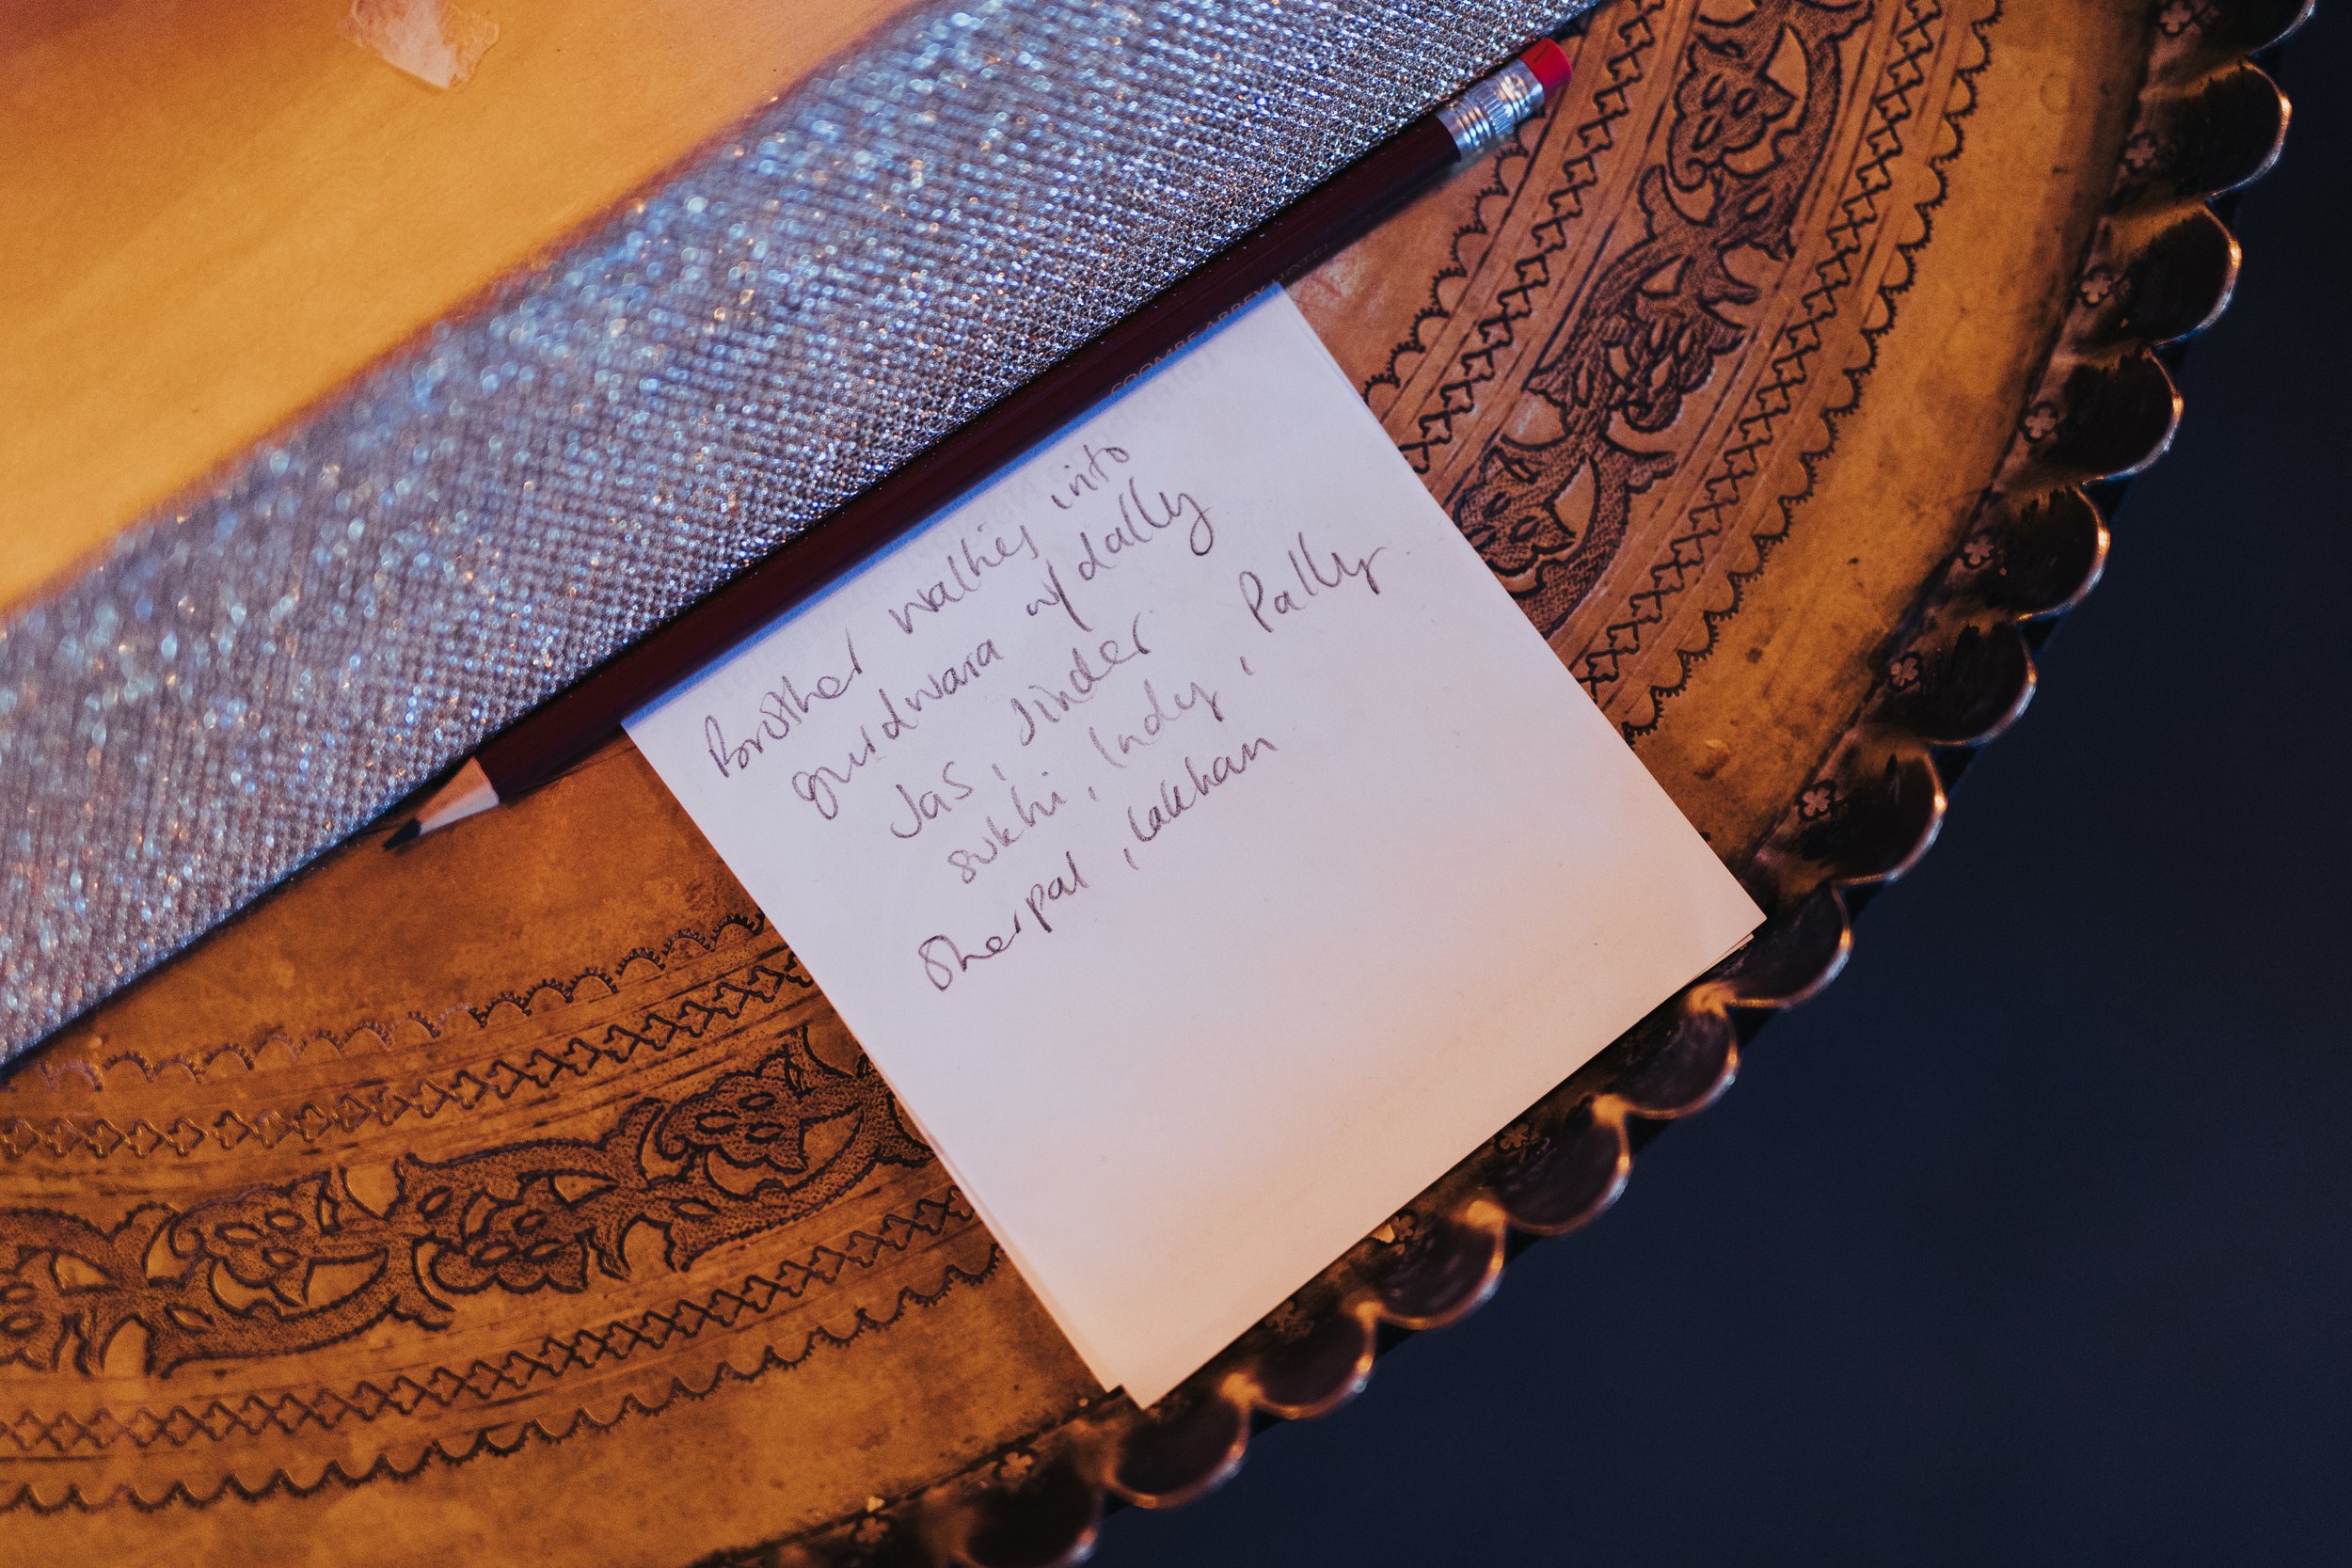 COOMBE ABBEY HOTEL
Brother walkes into
gurdwara w/ dally
Jas, Jinder
sukhi, Indy, Pally
Sherpal, Lakhan